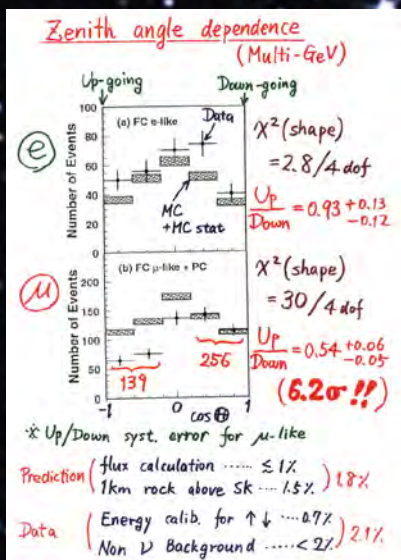 Zenith angle dependence
(Multi-GeV)
Up-going
Down-going
e
(a) FC e-like
Data
MC
+MC stat
Number of Events
100
80
60
40
20
0
χ²(shape)
= 2.8/4 dof
Up/Down = 0.93 +0.13 -0.12
μ
(b) FC μ-like + PC
Number of Events
200
150
100
50
0
139
256
-1
0
1
cos Θ
χ²(shape)
= 30/4 dof
Up/Down = 0.54 +0.06 -0.05
(6.2σ !!)
※ Up/Down syst. error for μ-like
Prediction ( flux calculation ...... ≲ 1% ) 1.8%
1km rock above SK .... 1.5%
Data ( Energy calib. for ↑↓ .... 0.7% ) 2.1%
Non ν Background ...... < 2%